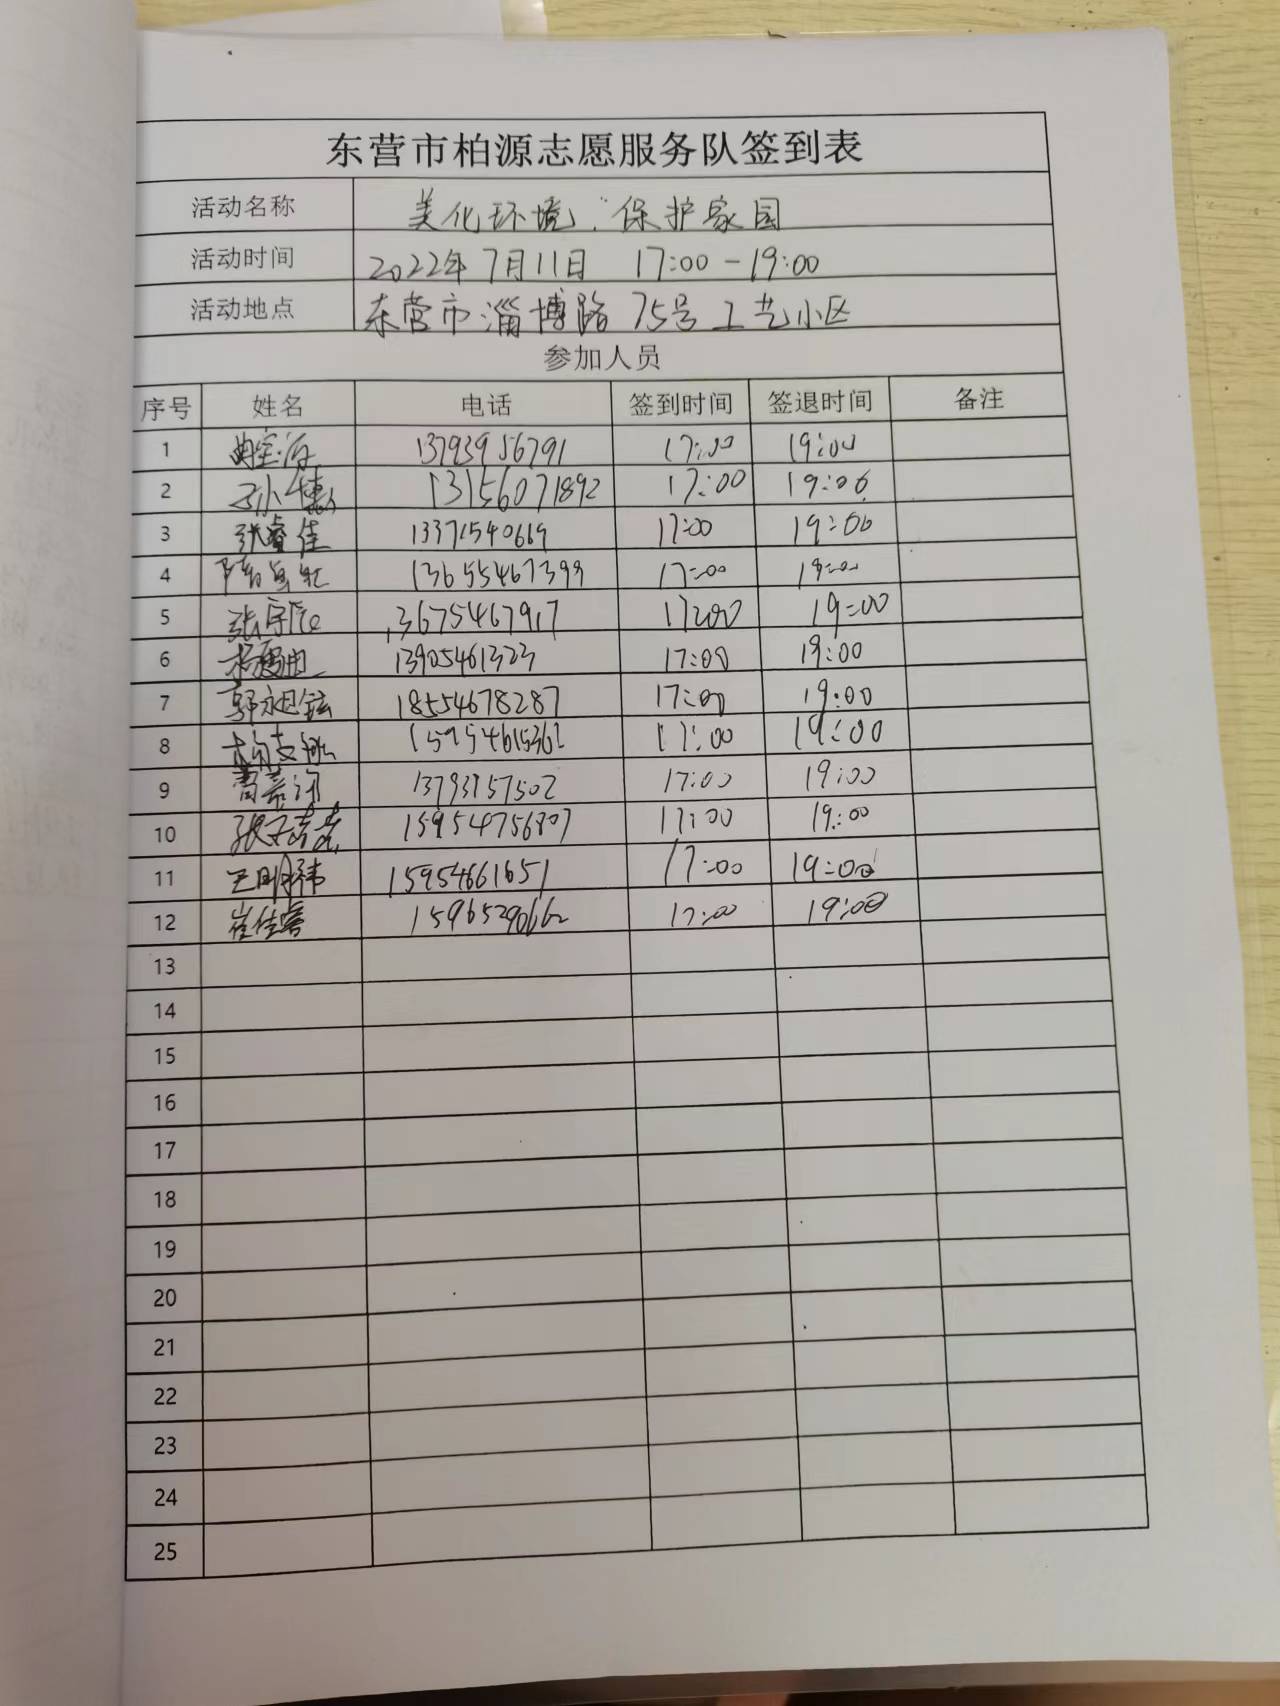 东营市柏源志愿服务队签到表
活动名称 美化环境，保护家园
活动时间 2022年7月11日 17:00-19:00
活动地点 东营市淄博路75号工艺小区
参加人员
序号 姓名 电话 签到时间 签退时间 备注
1 13793956791 17:00 19:00
2 13156071892 17:00 19:00
3 张睿佳 13371540669 17:00 19:00
4 13655467399 17:00 19:00
5 张宇辰 13675467917 17:00 19:00
6 13905461323 17:00 19:00
7 郭昶铉 18554678287 17:00 19:00
8 15954615362 17:00 19:00
9 13793957502 17:00 19:00
10 159954756807 17:00 19:00
11 王明祎 15954661651 17:00 19:00
12 崔佳睿 15965290662 17:00 19:00
13
14
15
16
17
18
19
20
21
22
23
24
25